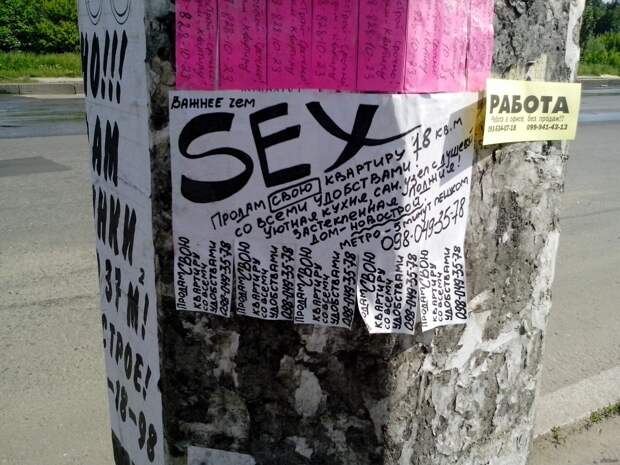 ВАЖНЕЕ ЧЕМ
SEX
ПРОДАМ СВОЮ КВАРТИРУ 18 КВ.М
СО ВСЕМИ УДОБСТВАМИ!
УЮТНАЯ КУХНЯ САН.УЗЕЛ С ДУШЕВОЙ
ЗАСТЕКЛЕННАЯ ЛОДЖИЯ!
ДОМ-НОВОСТРОЙ
МЕТРО - 5 МИНУТ ПЕШКОМ
098-049-35-78
ПРОДАМ СВОЮ
КВАРТИРУ
СО ВСЕМИ
УДОБСТВАМИ
098-049-35-78
ПРОДАМ СВОЮ
КВАРТИРУ
СО ВСЕМИ
УДОБСТВАМИ
098-049-35-78
ПРОДАМ СВОЮ
КВАРТИРУ
СО ВСЕМИ
УДОБСТВАМИ
098-049-35-78
ПРОДАМ СВОЮ
КВАРТИРУ
СО ВСЕМИ
УДОБСТВАМИ
098-049-35-78
ПРОДАМ СВОЮ
КВАРТИРУ
СО ВСЕМИ
УДОБСТВАМИ
098-049-35-78
РАБОТА
Работа в офисе, без продаж!!!
099-941-43-13
НО!!!
АМ
НКИ
37 М²!
СТРОЕ!
-18-98